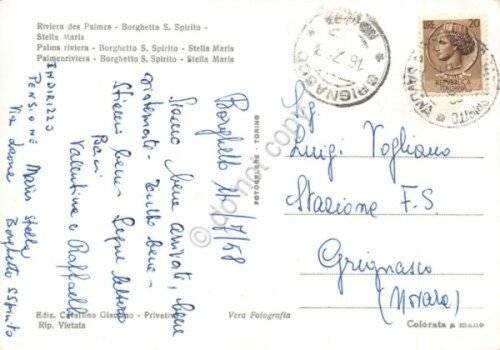 Riviera des Palmes - Borghetto S. Spirito -
Stella Maris
Palms riviera - Borghetto S. Spirito - Stella Maris
Palmenriviera - Borghetto S. Spirito - Stella Maris
Borghetto 11/7/58
Siamo bene arrivati, bene
sistemate - Tutto bene -
Stiamo bene - Segue lettera
Baci
Valentina e Raffaella
INDIRIZZO
PENSIONE Maris Stella
Via
Borghetto S Spirito
Ediz. Cavallino Giacomo - Privativa
Rip. Vietata
FOTOCELERE - TORINO
Vera Fotografia
GRIGNASCO
16.7.58
NOVARA
LIRE 20
ITALIANA
SPIRITO
SAVONA
Sig.
Luigi Vogliano
Stazione F.S
Grignasco
(Novara)
Colorata a mano
do not copy